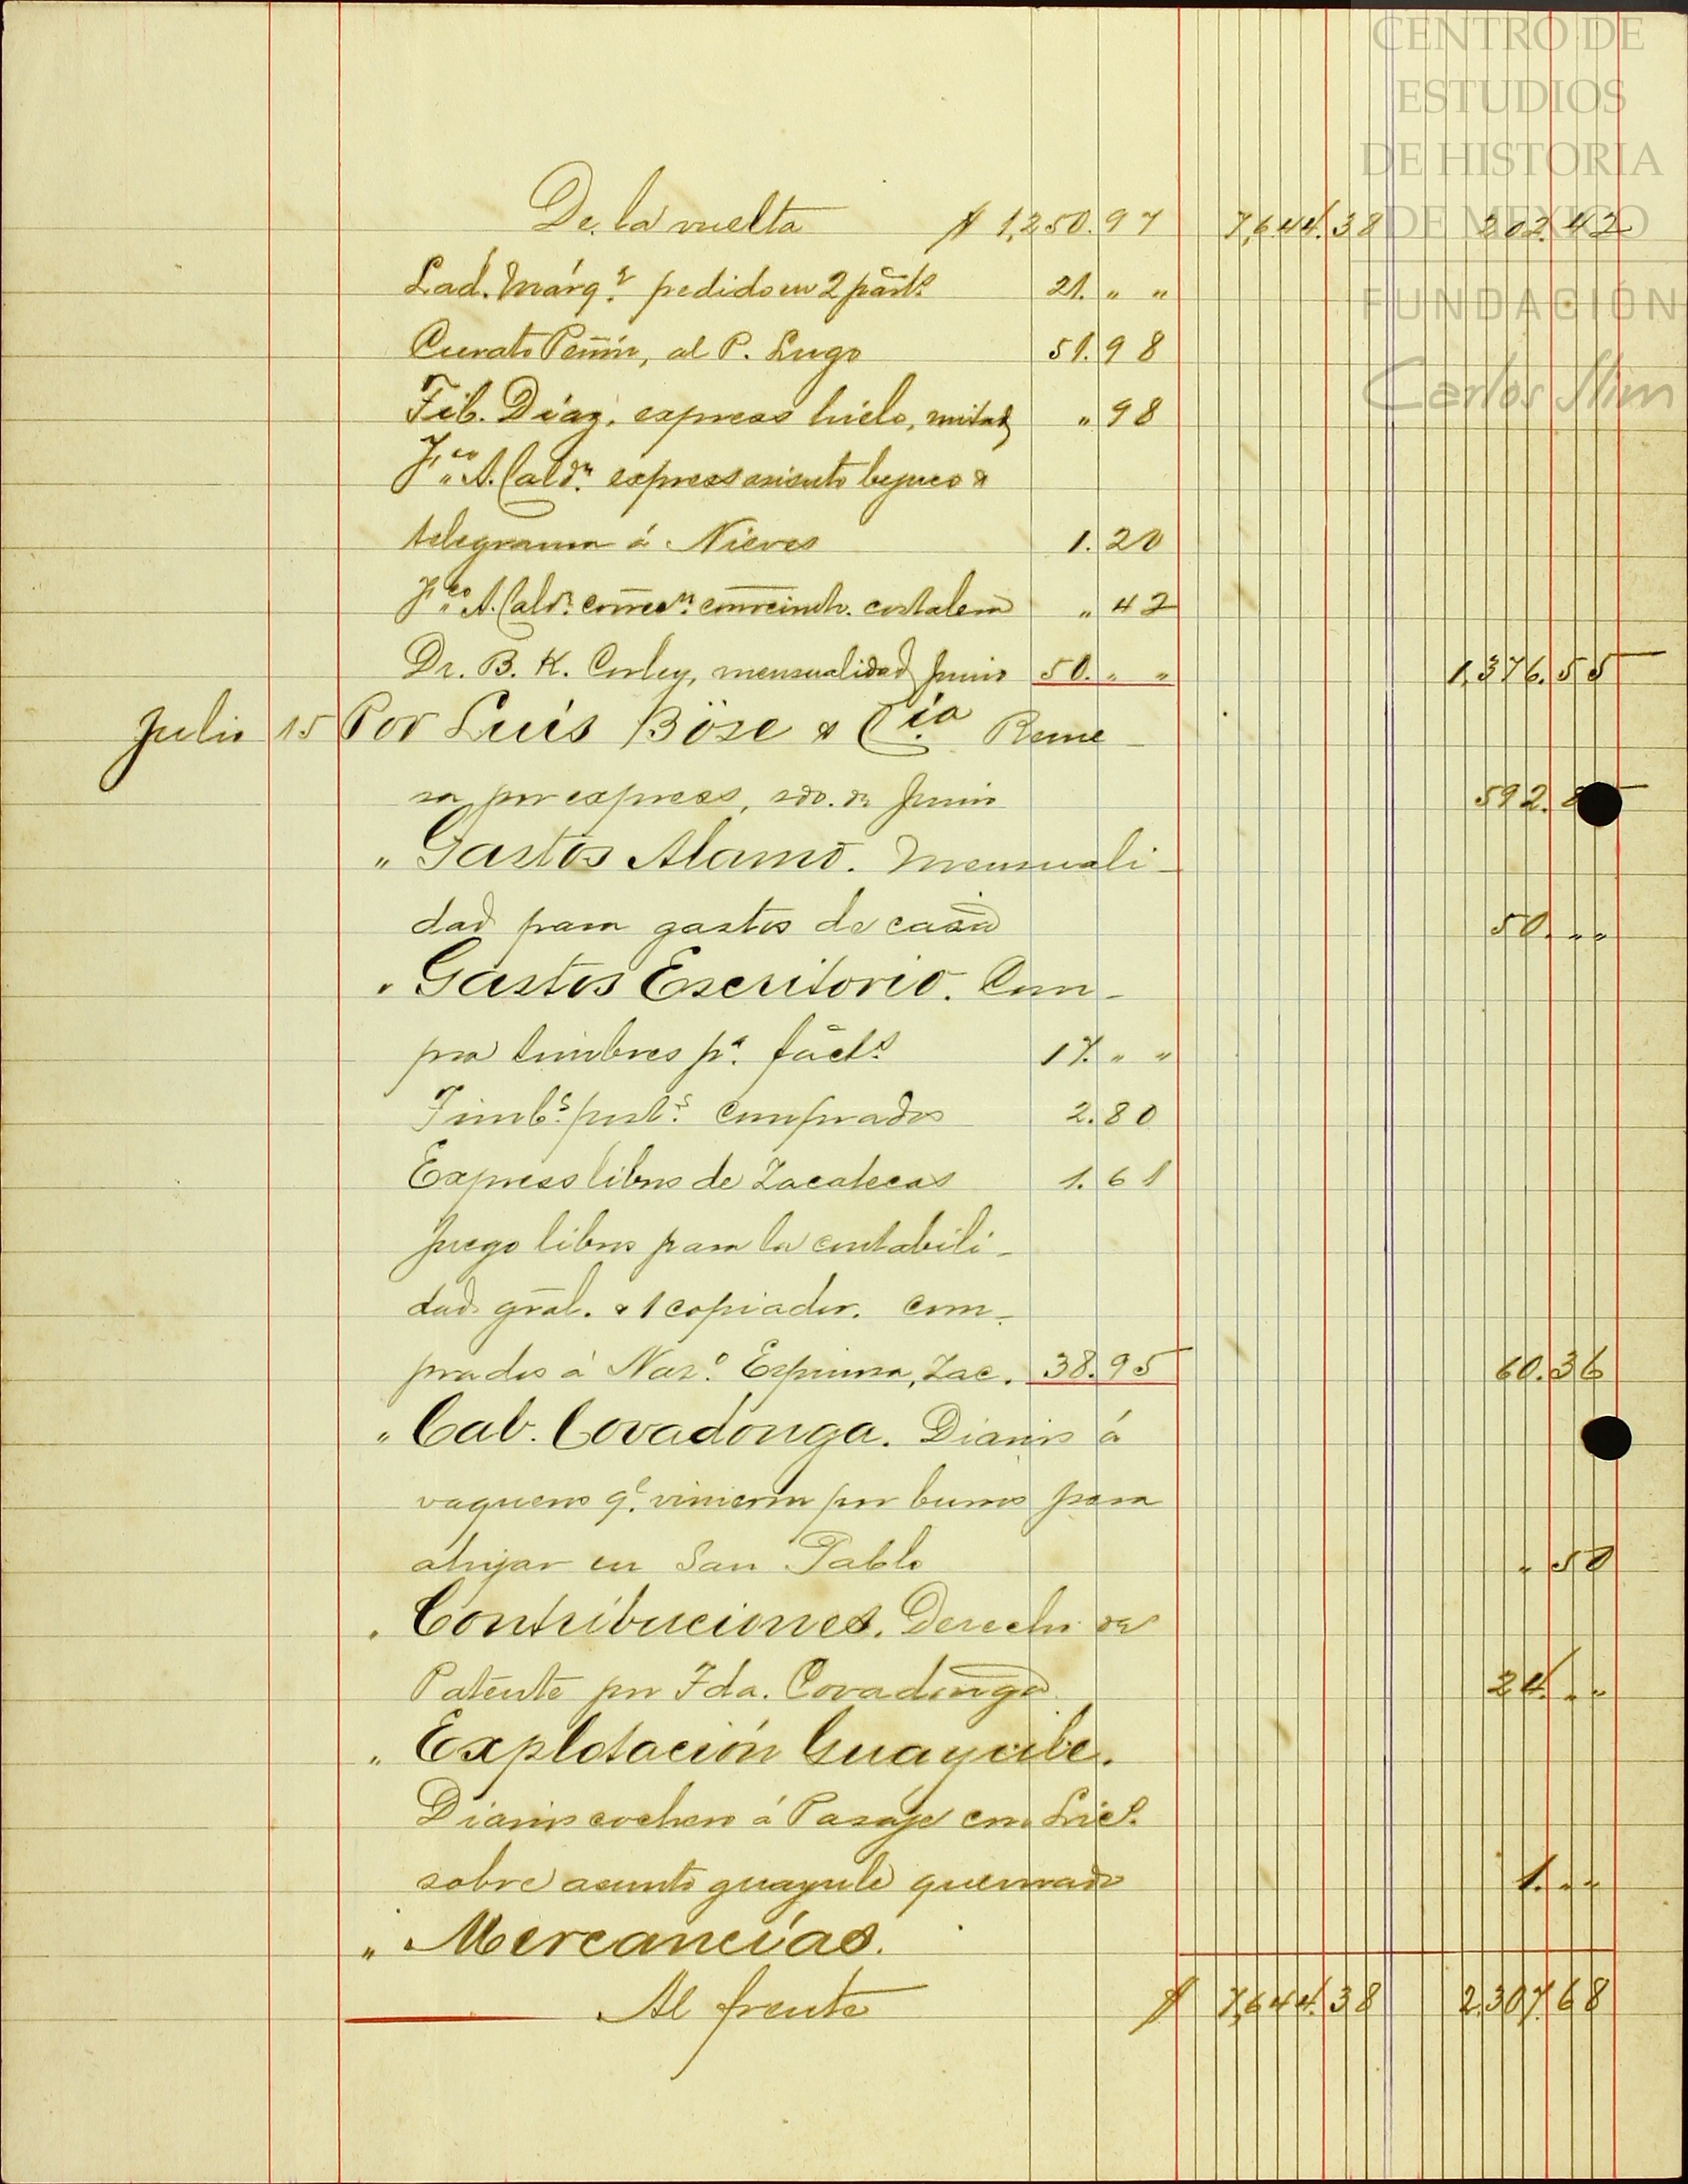 CENTRO DE
ESTUDIOS
DE HISTORIA
DE MEXICO
FUNDACIÓN
Carlos Slim
De la vuelta $ 1,250.97 7,644.38 202.42
Lad. Márq.z pedido en 2 part.s 21. " "
Curato Peñón, al P. Lugo 51.98
Fib. Díaz, express hielo, mitad " 98
F.co A. Cald.n express asiento bejuco &
telegrama á Nieves 1.20
F.co A. Cald.n costalera " 42
Dr. B. K. Corley, mensualidad Junio 50. " " 1,376.55
Julio 15 Por Luis Böse & Cía Reme-
sa por express, sdo. de Junio 592.8
" Gastos Alamo. Mensuali-
dad para gastos de casa 50. " "
" Gastos Escritorio. Com-
pra timbres p.a fact.s 17. " "
Timb.s post.s comprados 2.80
Express libros de Zacatecas 1.61
Juego libros para la contabili-
dad gral. & 1 copiador. com-
prados á Naz.o Espinosa, Zac. 38.95 60.36
" Cab. Covadonga. Diarios á
vaqueros q.e vinieron por burros para
ahijar en San Pablo " 50
" Contribuciones. Derecho de
Patente por Fda. Covadonga 24. " "
" Explotación Guayule.
Diarios cochero á Pasaje con
sobre asunto guayule quemado 1. " "
" Mercancías.
Al frente $ 7,644.38 2,307.68